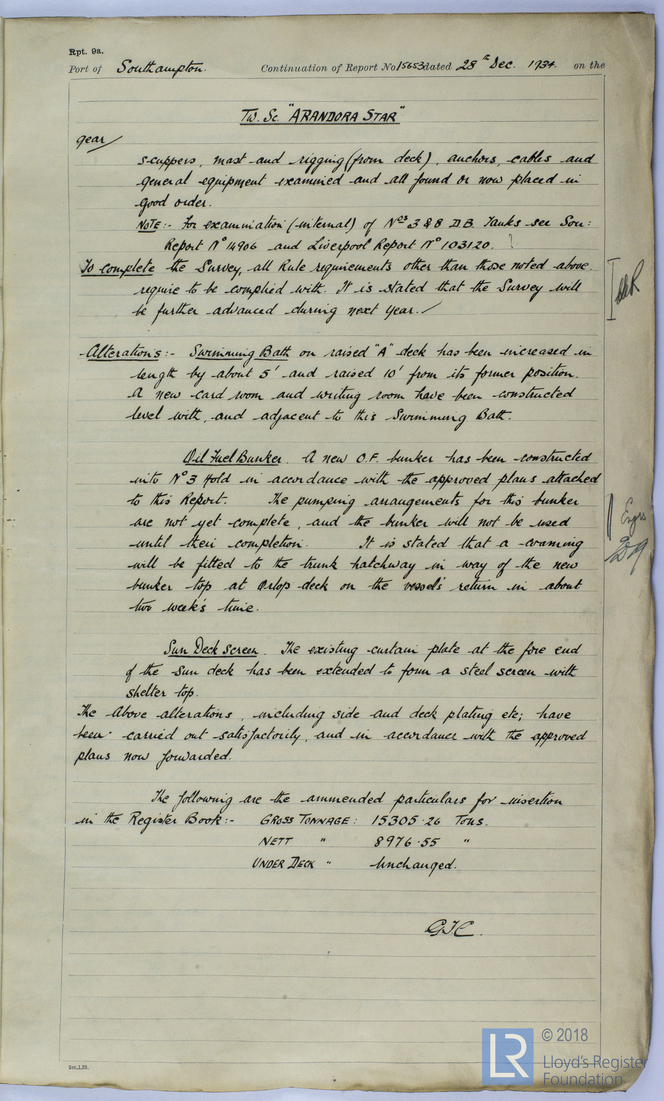 Rpt. 9a.
Port of Southampton. Continuation of Report No 15653 dated 28th Dec. 1934. on the
Tw. Sc. "ARANDORA STAR"
gear/
scuppers, mast and rigging (from deck), anchors, cables and
general equipment examined and all found or now placed in
good order.
NOTE:- For examination (internal) of Nos 3 & 8 D.B. Tanks see Sou:
Report No 14906 and Liverpool Report No 103120.
To complete the Survey, all Rule requirements other than those noted above
require to be complied with. It is stated that the Survey will
be further advanced during next year./
Alterations:- Swimming Bath on raised "A" deck has been increased in
length by about 5' and raised 10' from its former position.
A new card room and writing room have been constructed
level with, and adjacent to this Swimming Bath.
Oil Fuel Bunker. A new O.F. bunker has been constructed
into No 3 Hold in accordance with the approved plans attached
to this Report. The pumping arrangements for this bunker
are not yet complete, and the bunker will not be used
until their completion. It is stated that a coaming
will be fitted to the trunk hatchway in way of the new
bunker top at Orlop deck on the vessel's return in about
two week's time.
Sun Deck Screen. The existing curtain plate at the fore end
of the sun deck has been extended to form a steel screen with
shelter top.
The above alterations, including side and deck plating etc; have
been carried out satisfactorily, and in accordance with the approved
plans now forwarded.
The following are the ammended particulars for insertion
in the Register Book:- GROSS TONNAGE: 15305.26 Tons.
NETT " 8976.55 "
UNDER DECK " Unchanged.
© 2018
LR
Lloyd's Register
Foundation